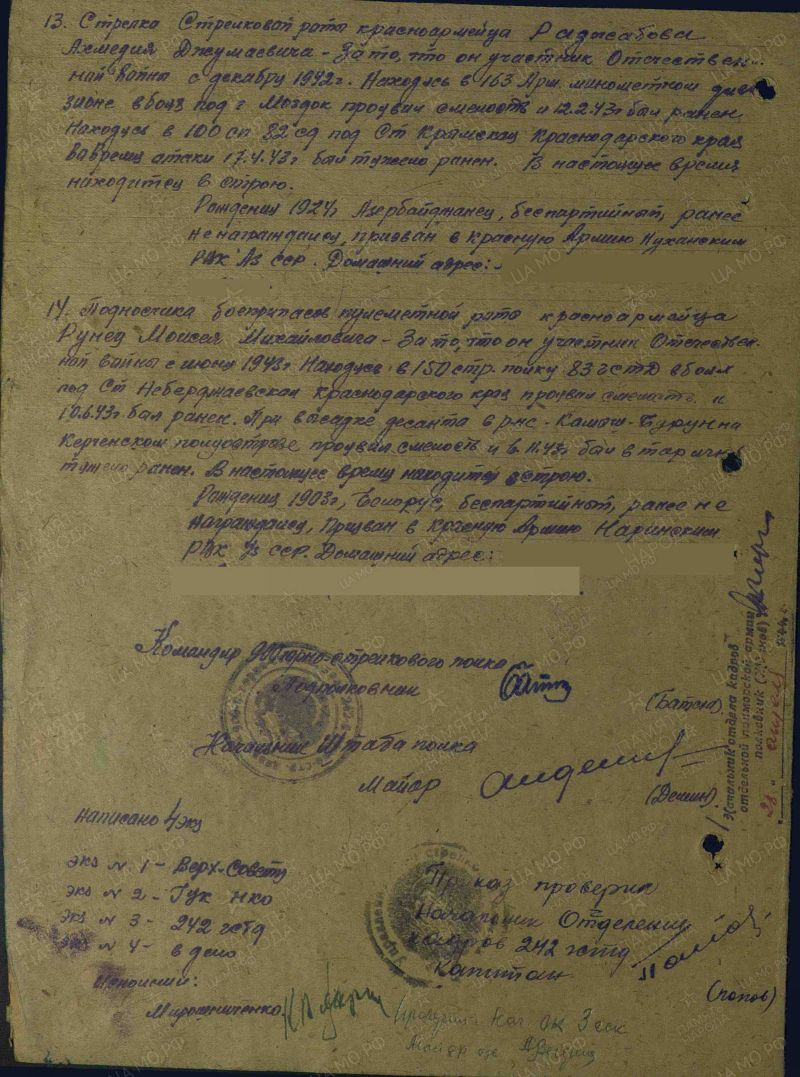 13. Стрелка Стрелковой роты красноармейца Раджабова
Ахмедия Джумаевича – За то, что он участник Отечествен-
ной войны с декабря 1942г. Находясь в 163 Арм. минометном диви-
зионе в боях под г Моздок проявил смелость и 12.2.43г был ранен.
Находясь в 100 сп 82 сд под Ст Крымская Краснодарского края
Вовремя атаки 17.4.43г был тяжело ранен. В настоящее время
находится в строю.
Рождения 1924г Азербайджанец, беспартийный, ранее
не награждался, призван в Красную Армию Нуханским
РВК Аз ССР. Домашний адрес: –
14. Подносчика боеприпасов пулеметной роты красноармейца
Рунец Моисея Михайловича – За то, что он участник Отечествен-
ной войны с июня 1943г. Находясь в 150 стр. полку 83 гстд в боях
под Ст Неберджаевская Краснодарского края проявил смелость и
10.6.43г был ранен. При высадке десанта в р-не - Камыш-Бурун на
Керченском полуострове проявил смелость и в 11.43г был вторично
тяжело ранен. В настоящее время находится в строю.
Рождения 1903г, Белорус, беспартийный, ранее не
награждался, Призван в Красную Армию Наринским
РВК Уз ССР. Домашний адрес:
Командир 900 горно-стрелкового полка
Подполковник
(Батсин).
Начальник Штаба полка
Майор
(Демин).
Написано 4 экз
экз N 1 – Верх-Совету
экз N 2 – ГУК НКО
экз N 3 – 242 гстд
экз N 4 – в дело
Исполнил:
Мирошниченко
Приказ проверил
Начальник Отделения
кадров 242 гстд
Капитан
(Попов)
Начальник отдела кадров
отдельной приморской армии
полковник